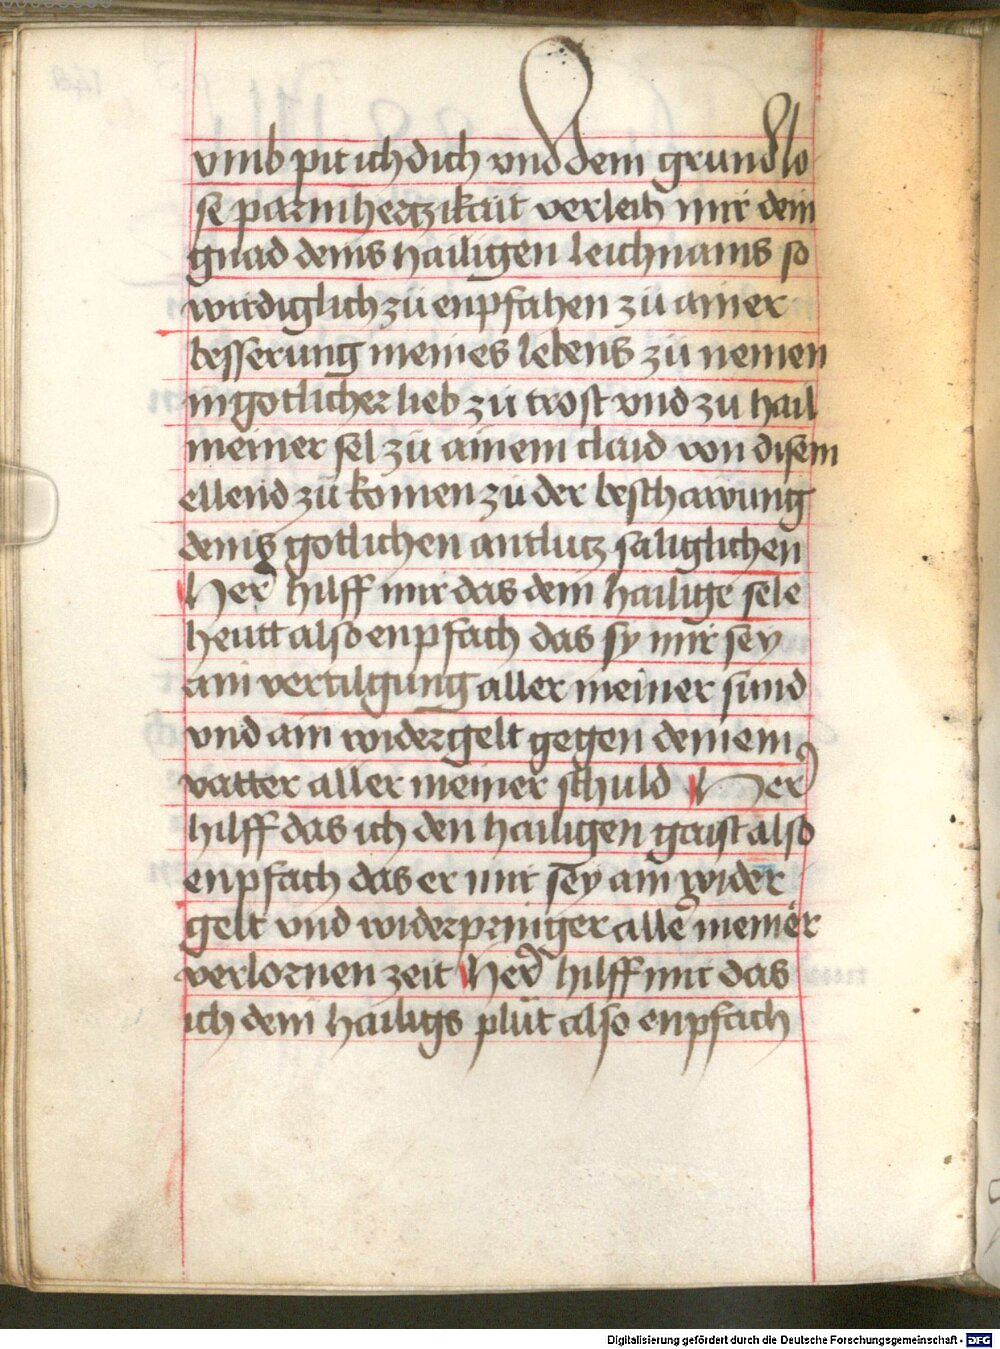 vmb pit ich dich vnd dein grundlo
se parmhertzikait verleich mir dein
gnad deins hailigen leichnams so
wirdiglich zu enpfahen zu ainer
besserung meines lebens zu nemen
in gotlicher lieb zu trost vnd zu hail
meiner sel zu ainem claid von disem
ellend zu komen zu der beschawung
deins gotlichen antlutz säliglichen
Her hilff mir das dein hailige sele
heutt also enpfach das sy mir sey
ain vertilgung aller meiner sund
vnd ain widergelt gegen deinem
vatter aller meiner schuld Her
hilff das ich den hailigen gaist also
enpfach das er mir sey ain wider
gelt vnd widerpringer alle meiner
verlornen zeit Her hilff mir das
ich dein hailigs plüt also enpfach
Digitalisierung gefördert durch die Deutsche Forschungsgemeinschaft - DFG